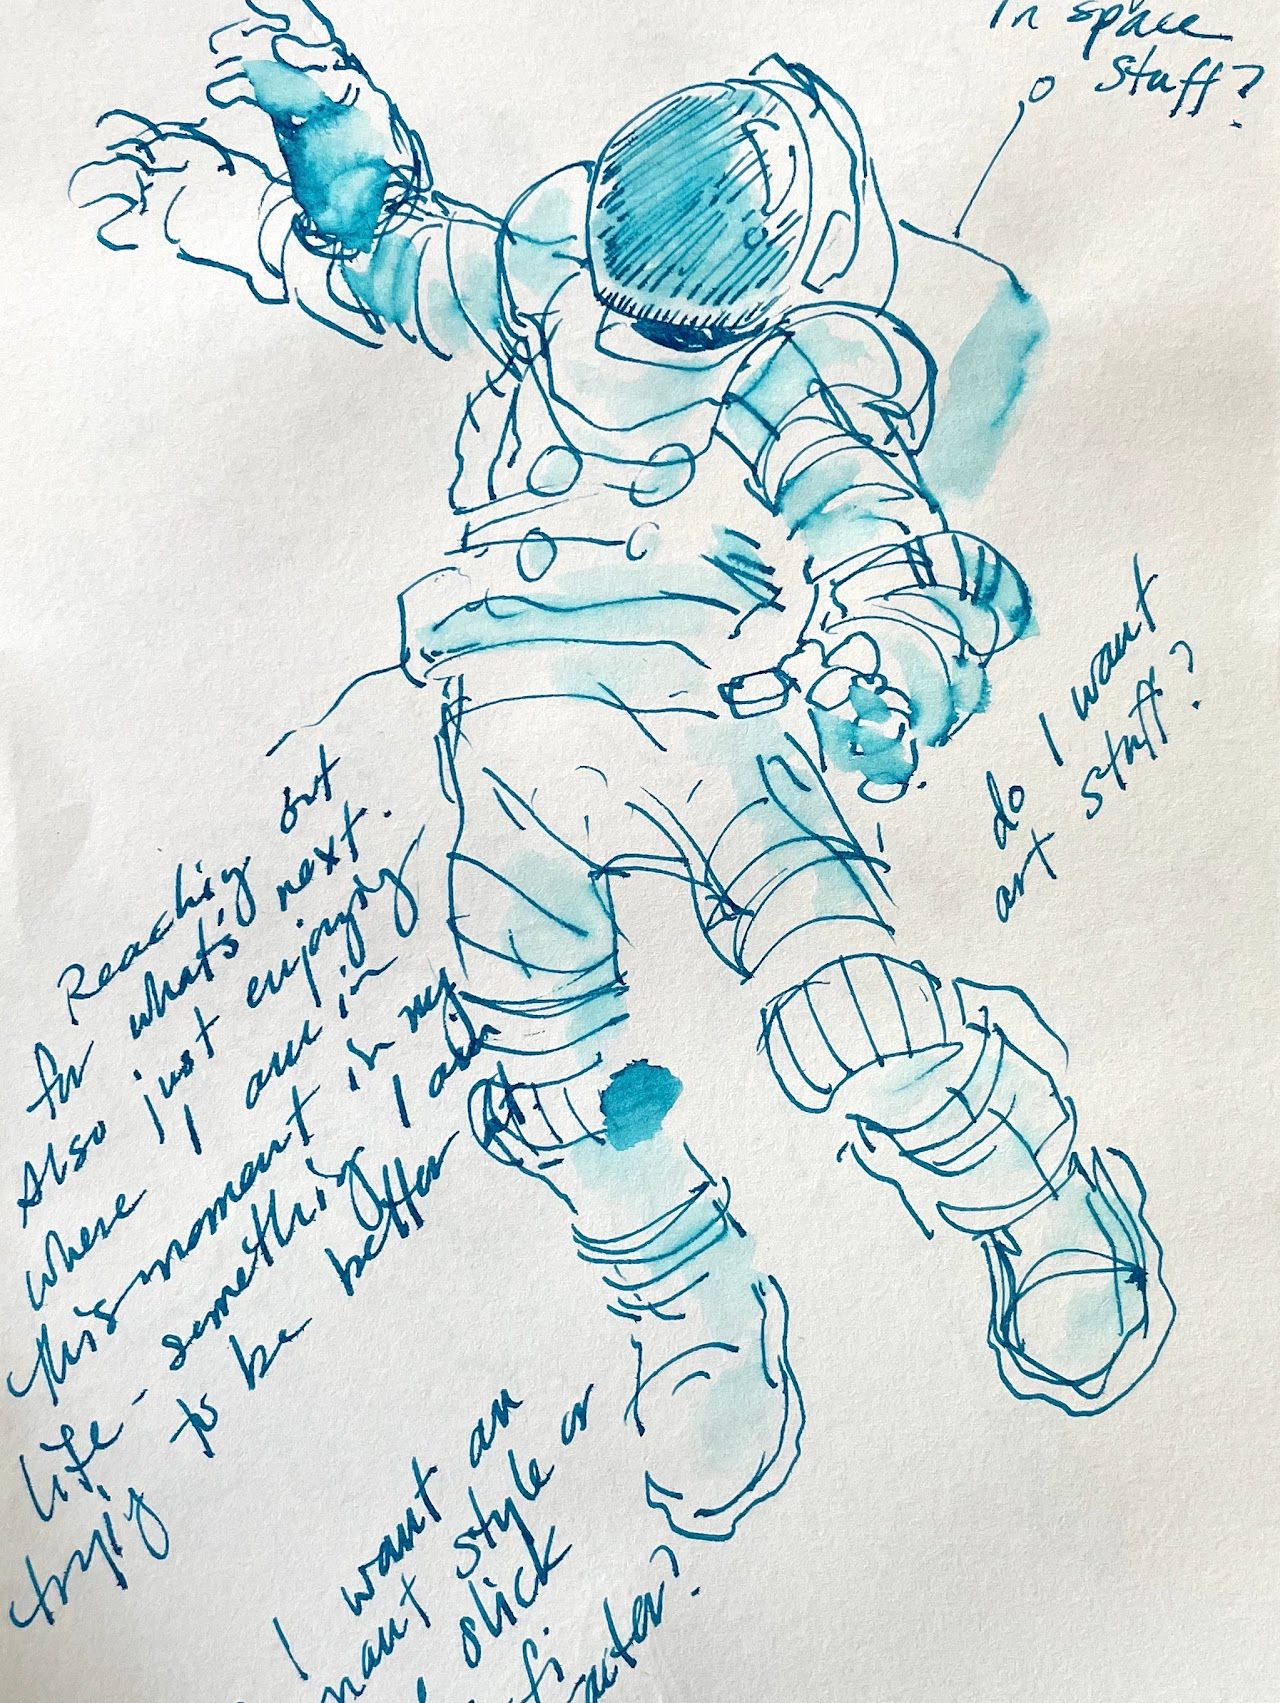 In space
stuff?
do I want
art stuff?
Reaching out
for what's next.
Also just enjoying
where I am in
this moment in my
life - something I am
trying to be better at.
I want an
style or
slick